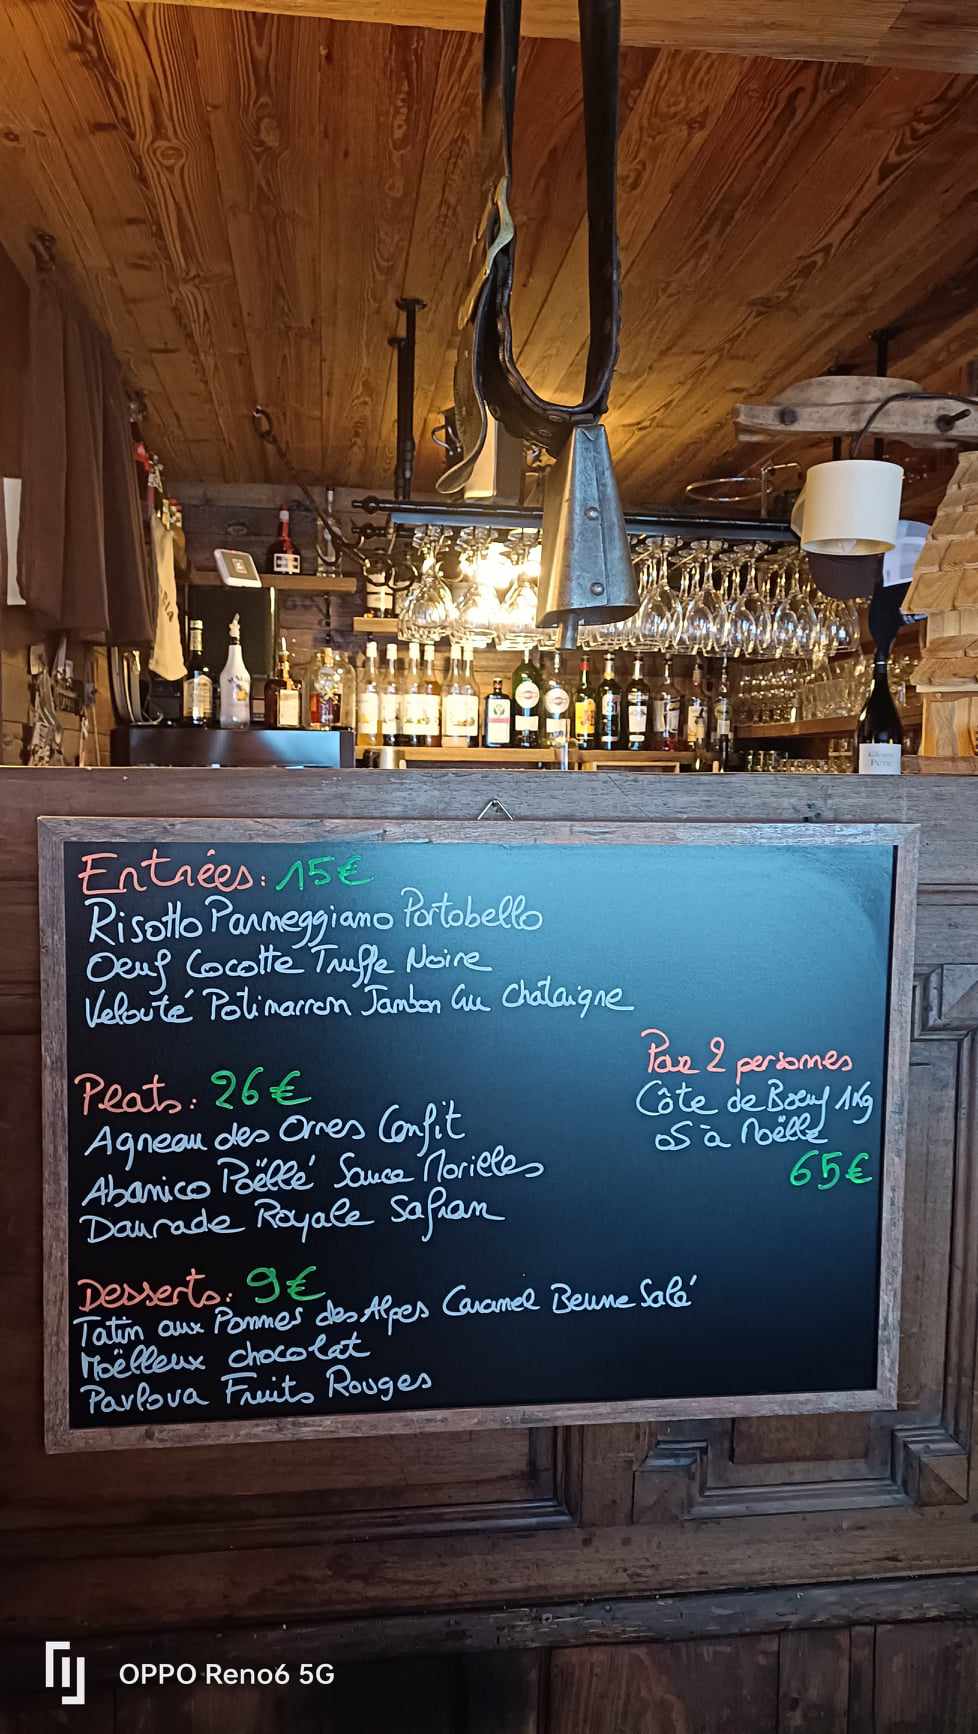 Entrées: 15€
Risotto Parmeggiano Portobello
Oeuf Cocotte Truffe Noire
Velouté Potimarron Jambon Cru Chataigne
Plats: 26€
Agneau des Ornes Confit
Abanico Poëllé Sauce Morilles
Daurade Royale Safran
Pour 2 personnes
Côte de Boeuf 1Kg
OS à Moëlle
65€
Desserts: 9€
Tatin aux Pommes des Alpes Caramel Beurre Salé
Moëlleux chocolat
Pavlova Fruits Rouges
OPPO Reno6 5G